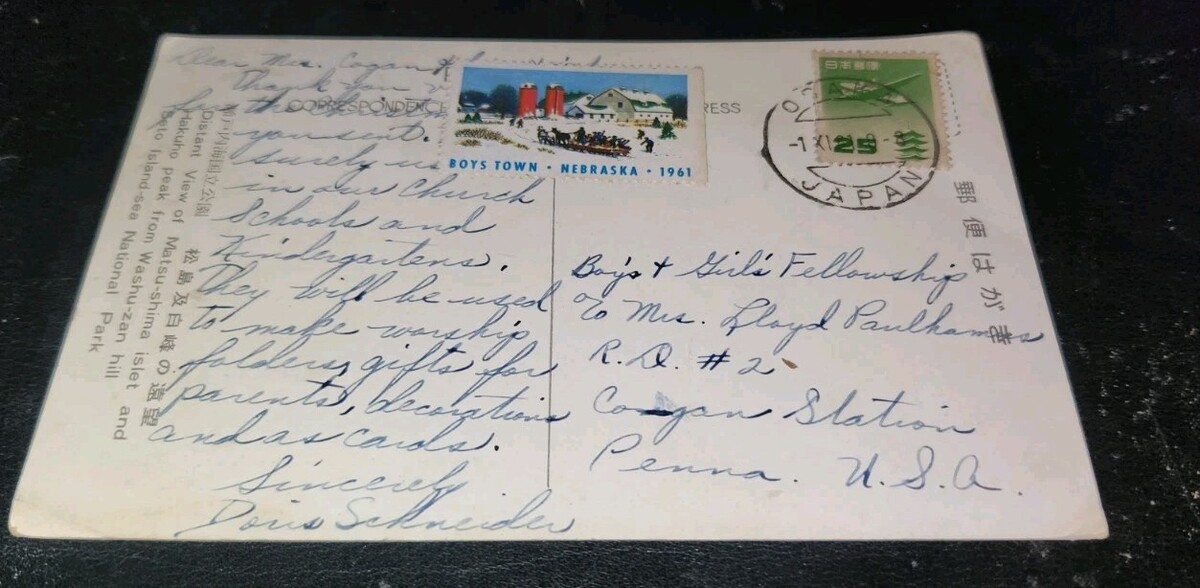 Dear Mrs. Cogan
Thank you
for the
you sent.
Surely
in our Church
Schools and
Kindergartens.
They will be used
to make worship
folders, gifts for
parents, decorations
and as cards.
Sincerely
Doris Schneider
CORRESPONDENCE
RESS
BOYS TOWN • NEBRASKA • 1961
日本郵便
JAPAN
郵便はがき
Boy's & Girl's Fellowship
c/o Mrs. Lloyd Paulhamus
R.D. #2
Cogan Station
Penna. U.S.A.
国立公園 松島及白峰の遠望
Distant View of Matsu-shima islet and
Hakuho peak from Washu-zan hill
Seto Island-sea National Park